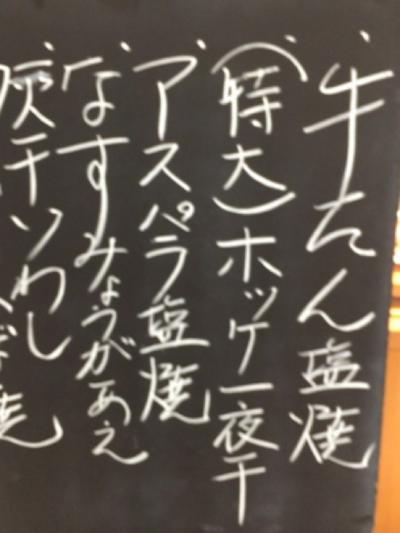 牛たん塩焼
(特大)ホッケ一夜干
アスパラ塩焼
なすみょうがあえ
灰干いわし
焼